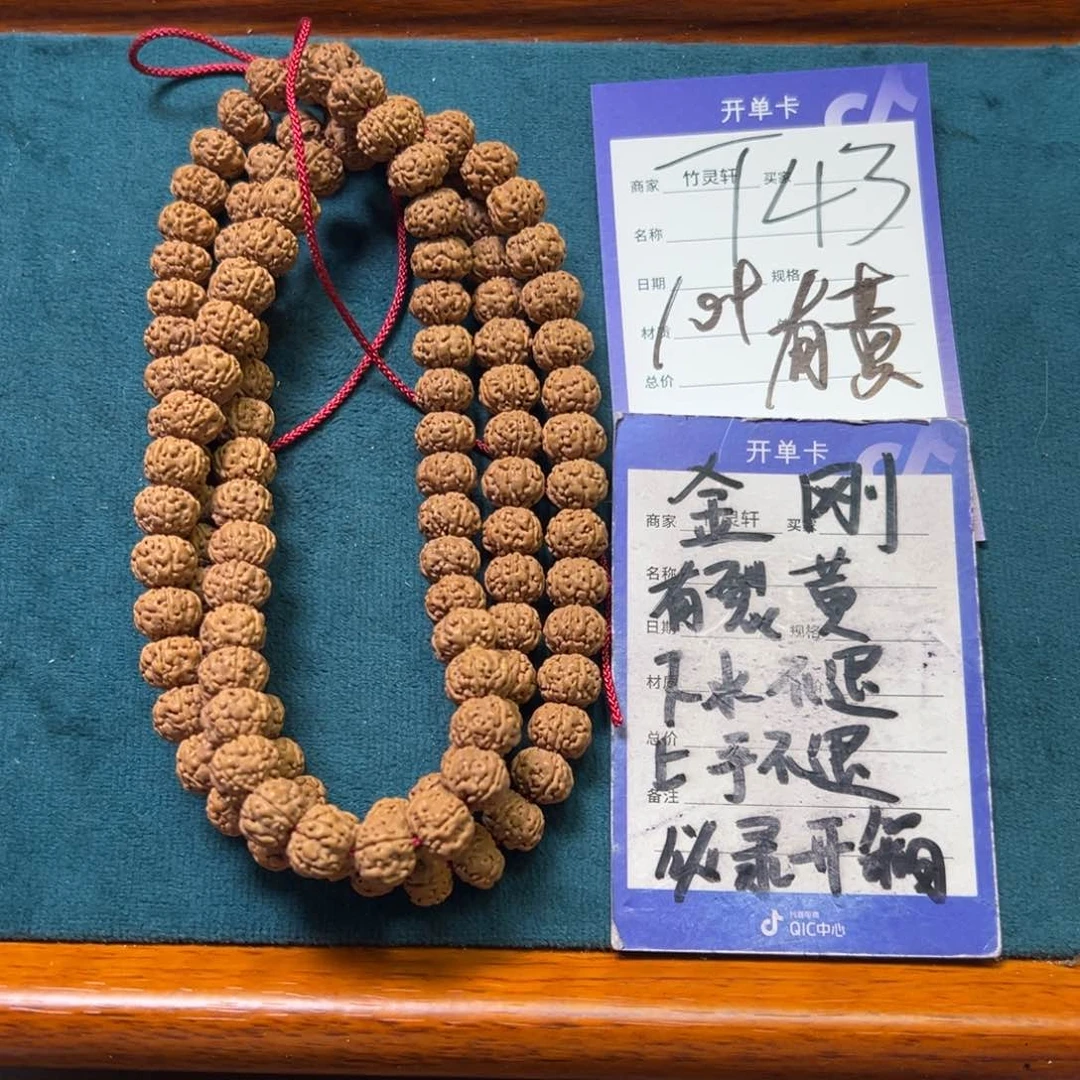 开单卡
T43
商家 竹灵轩 买家
名称
日期 规格
有黄
总价
开单卡
金刚
商家 灵轩 买家
名称
有裂黄
日期 规格
材质
下水不退
总价
上手不退
备注
必录开箱
抖音电商
QIC中心